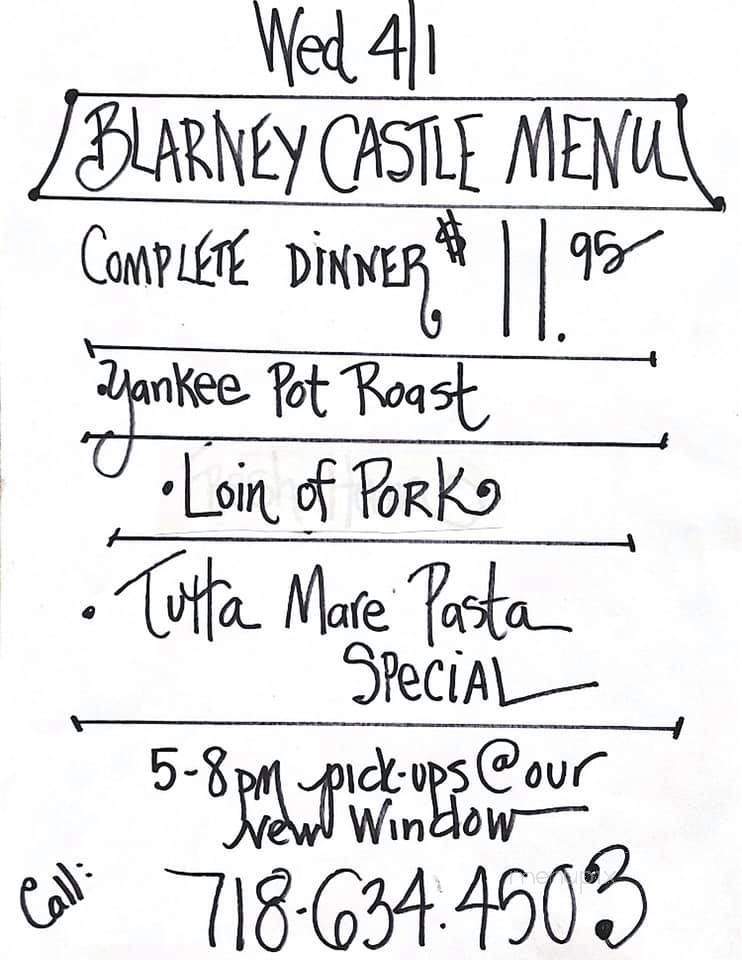 Wed 4/1
BLARNEY CASTLE MENU
COMPLETE DINNER $11.95
•Yankee Pot Roast
•Loin of PORK
• Tutta Mare Pasta
SPECIAL
5-8pm pick-ups @ our
New Window
Call: 718-634.4503
menupix